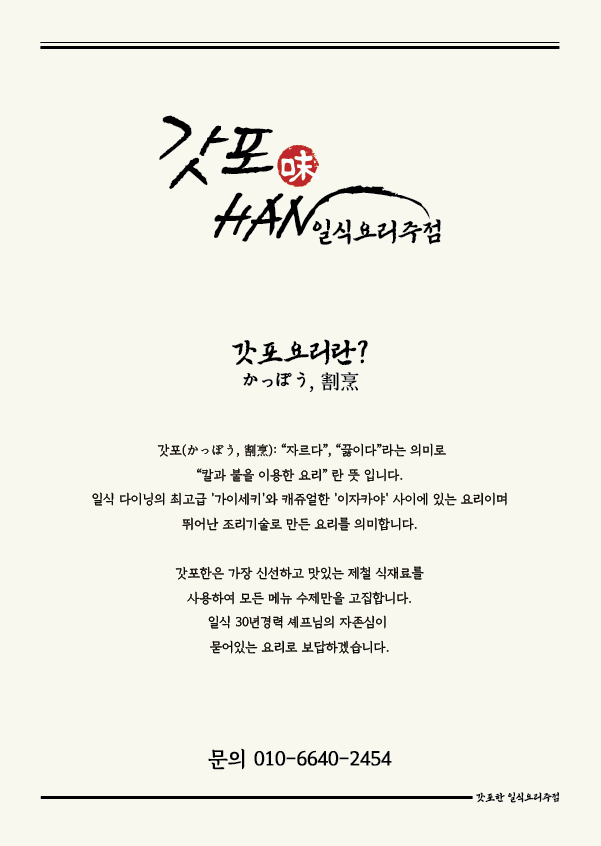 갓포味
HAN일식요리주점
갓포요리란?
かっぽう, 割烹
갓포(かっぽう, 割烹): “자르다”, “끓이다”라는 의미로
“칼과 불을 이용한 요리” 란 뜻 입니다.
일식 다이닝의 최고급 '가이세키'와 캐쥬얼한 '이자카야' 사이에 있는 요리이며
뛰어난 조리기술로 만든 요리를 의미합니다.
갓포한은 가장 신선하고 맛있는 제철 식재료를
사용하여 모든 메뉴 수제만을 고집합니다.
일식 30년경력 셰프님의 자존심이
묻어있는 요리로 보답하겠습니다.
문의 010-6640-2454
갓포한 일식요리주점